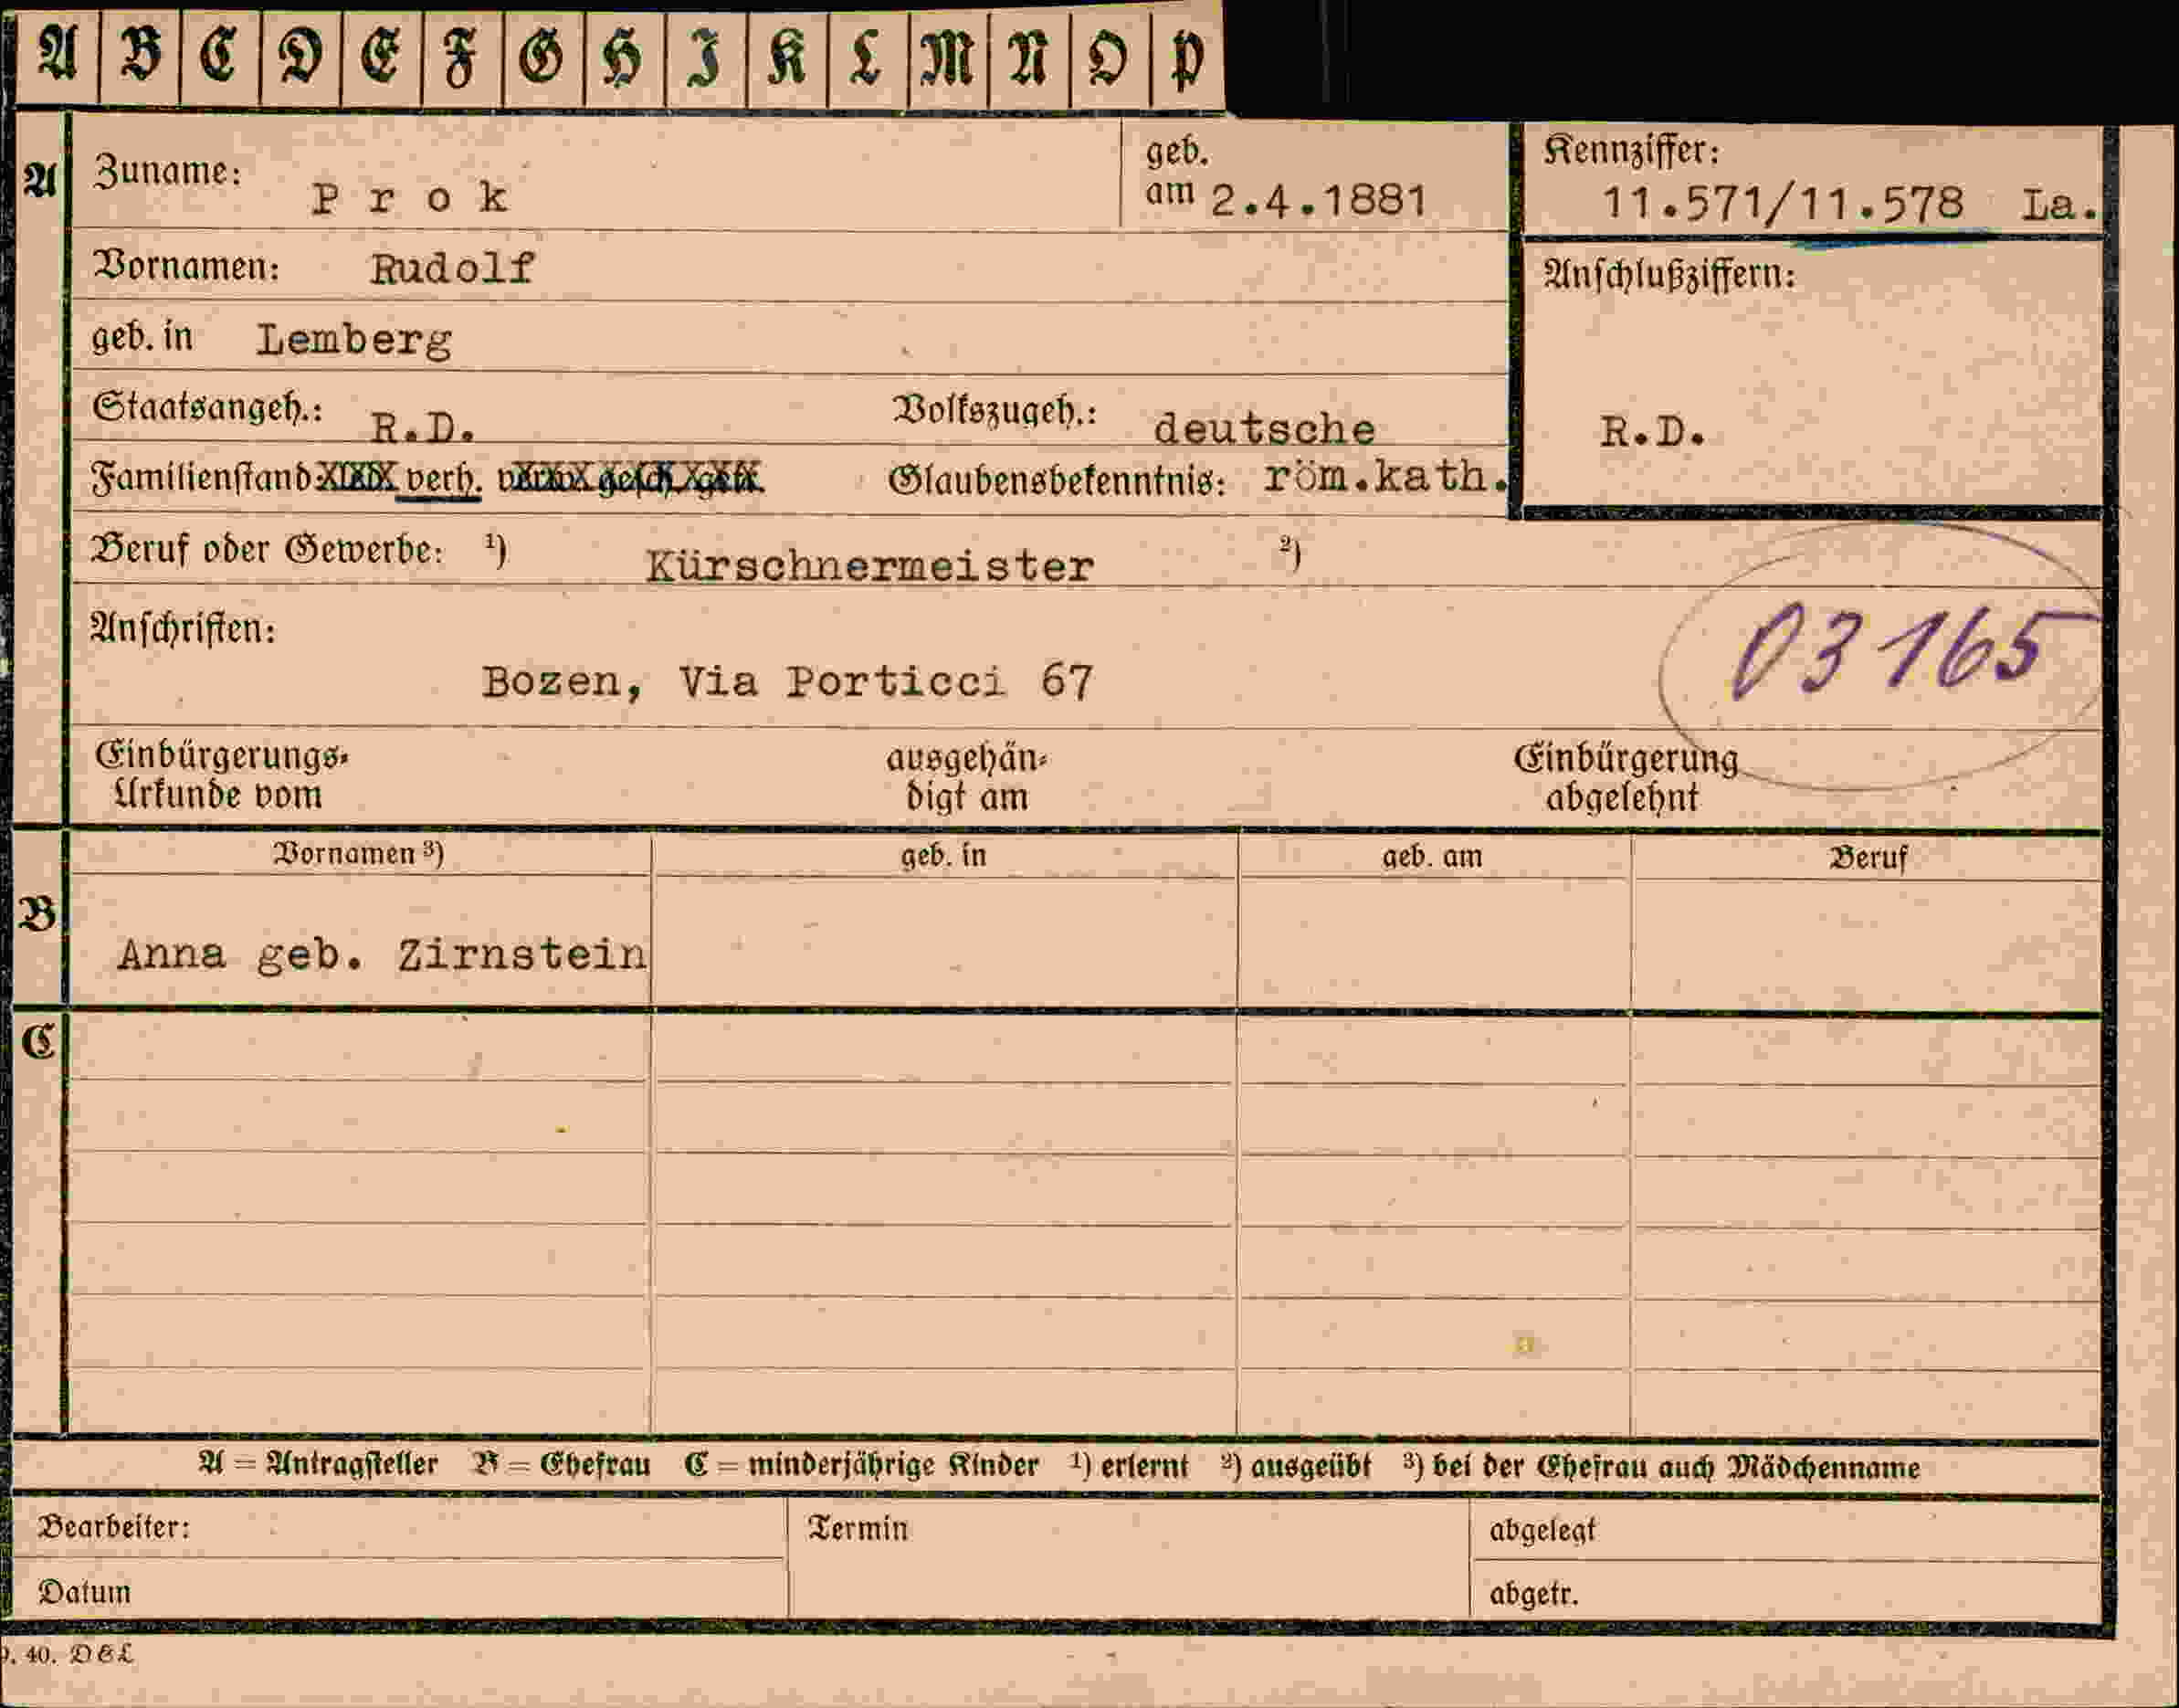 A B C D E F G H I K L M N O P
A Zuname: Prok geb. am 2.4.1881 Kennziffer: 11.571/11.578 La.
Vornamen: Rudolf Anschlußziffern:
geb. in Lemberg
Staatsangeh.: R.D. Volkszugeh.: deutsche R.D.
Familienstand verh. gesch. Glaubensbekenntnis: röm.kath.
Beruf oder Gewerbe: ¹) Kürschnermeister ²)
Anschriften: 03165
Bozen, Via Porticci 67
Einbürgerungs- ausgehän- Einbürgerung
Urkunde vom digt am abgelehnt
Vornamen ³) geb. in geb. am Beruf
B
Anna geb. Zirnstein
C
A = Antragsteller B = Ehefrau C = minderjährige Kinder ¹) erlernt ²) ausgeübt ³) bei der Ehefrau auch Mädchenname
Bearbeiter: Termin abgelegt
Datum abgetr.
40. D&L